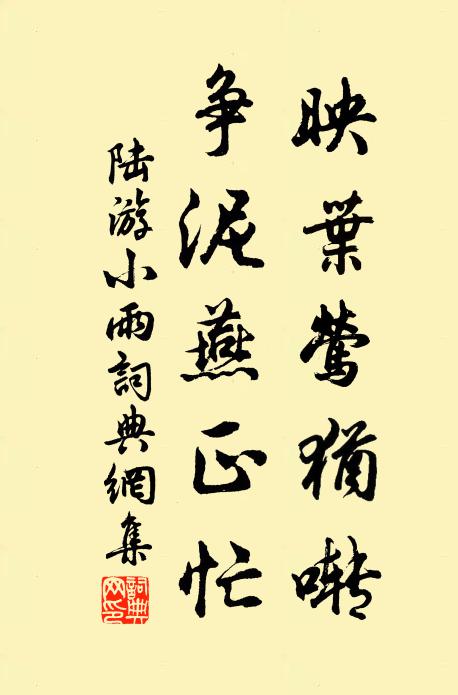 映葉鶯猶囀
争泥燕正忙
陆游小雨詞典網集
詞典网印